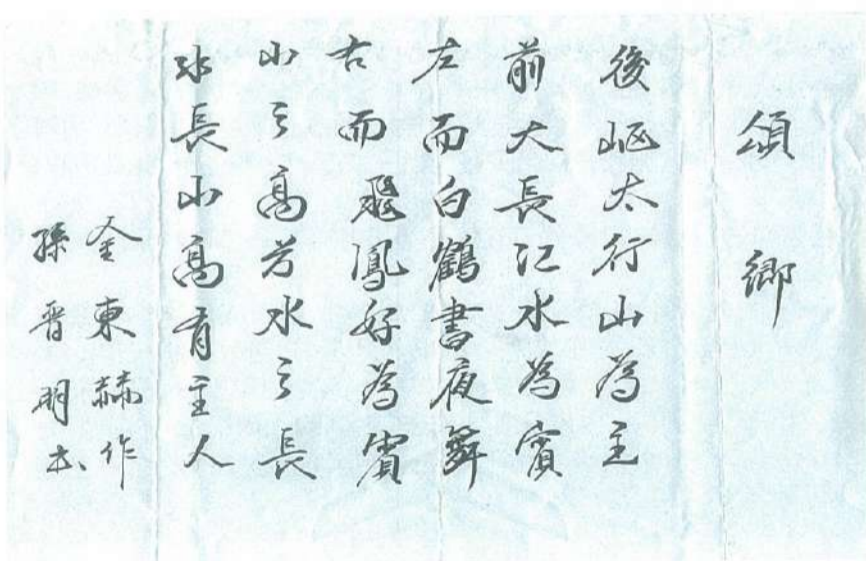 頌鄉
後岖太行山為主
前大長江水為賓
左而白鶴書夜舞
右而飛鳳好為賓
山之高兮水之長
水長山高有主人
金東赫作
孫晋明书